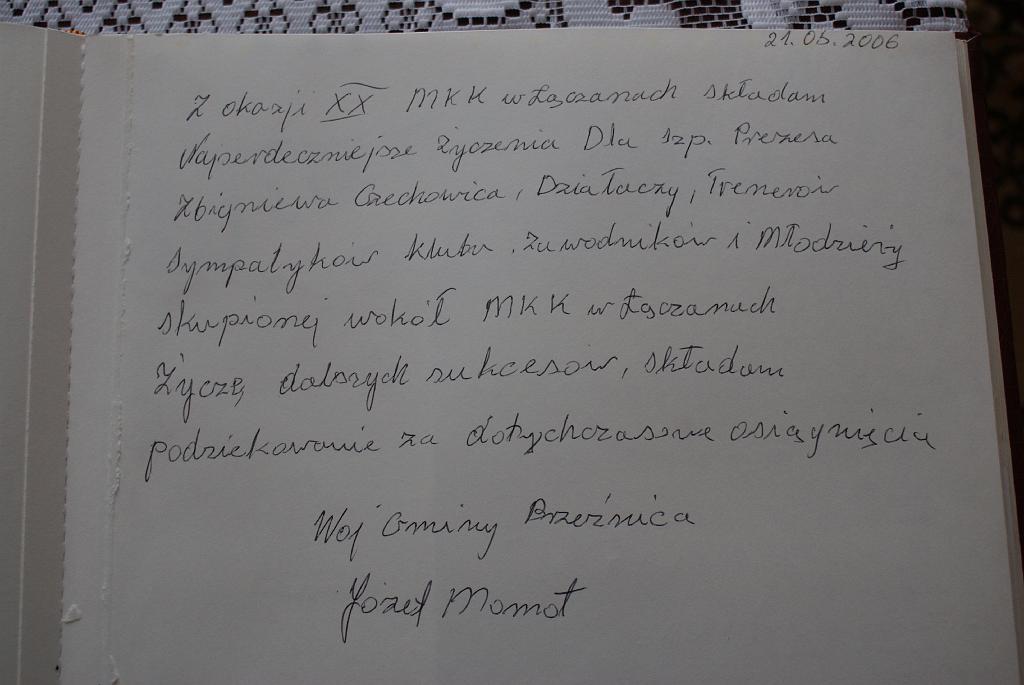 21.05.2006
Z okazji XX MKK w Łączanach składam
Najserdeczniejsze Życzenia Dla szp. Prezesa
Zbigniewa Czechowica, Działaczy, Trenerów
Sympatyków klubu, Zawodników i Młodzieży
skupionej wokół MKK w Łączanach
Życzę dalszych sukcesów, składam
podziekowanie za dotychczasowe osiągnięcia
Wój Gminy Brzeźnica
Józef Momot